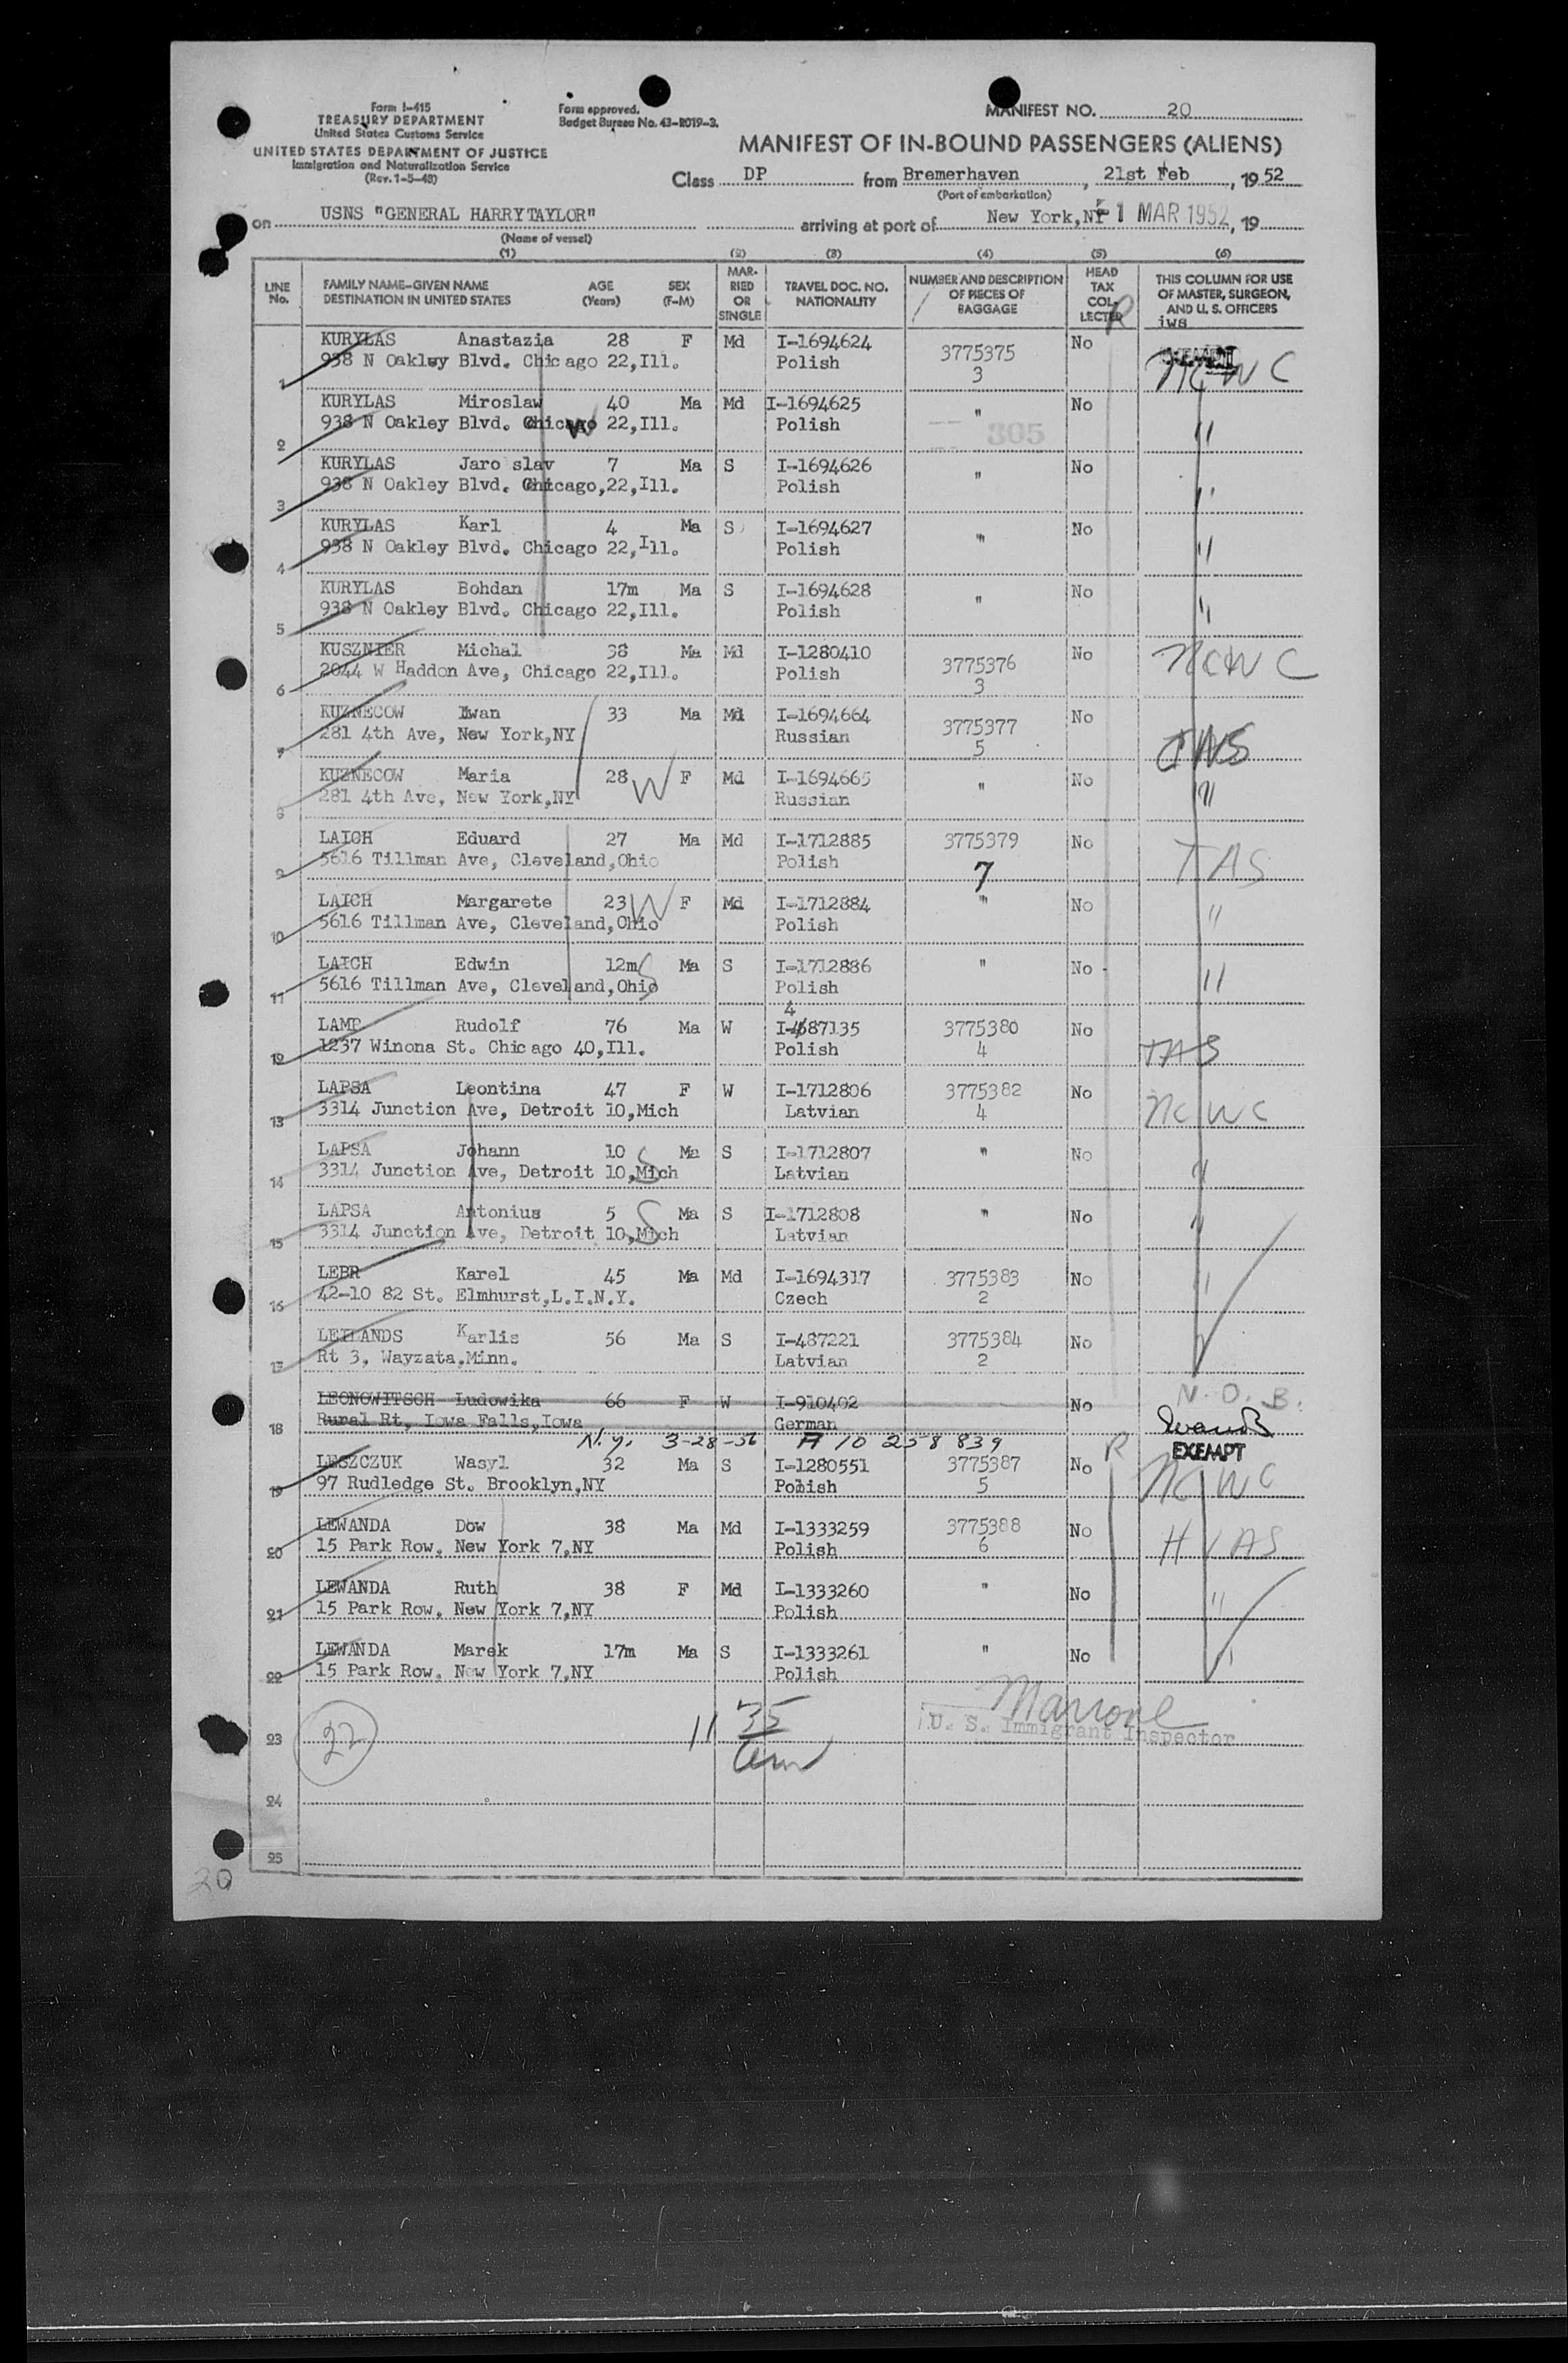 Form I-415
TREASURY DEPARTMENT
United States Customs Service
UNITED STATES DEPARTMENT OF JUSTICE
Immigration and Naturalization Service
(Rev. 1-5-48)
Form approved.
Budget Bureau No. 43-R019-3.
MANIFEST NO. 20
MANIFEST OF IN-BOUND PASSENGERS (ALIENS)
Class DP from Bremerhaven, 21st Feb, 19 52
(Port of embarkation)
on USNS "GENERAL HARRY TAYLOR" arriving at port of New York, NY -1 MAR 1952, 19
(Name of vessel)
(1) (2) (3) (4) (5) (6)
LINE No. FAMILY NAME-GIVEN NAME DESTINATION IN UNITED STATES AGE (Years) SEX (F-M) MARRIED OR SINGLE TRAVEL DOC. NO. NATIONALITY NUMBER AND DESCRIPTION OF PIECES OF BAGGAGE HEAD TAX COLLECTED THIS COLUMN FOR USE OF MASTER, SURGEON, AND U. S. OFFICERS
R iws
KURYLAS Anastazia 28 F Md I-1694624 3775375 No NCWC
1 938 N Oakley Blvd. Chicago 22,Ill. Polish 3
KURYLAS Miroslaw 40 Ma Md I-1694625 " No "
2 938 N Oakley Blvd. Chicago 22,Ill. W Polish 305
KURYLAS Jaro slav 7 Ma S I-1694626 " No "
3 938 N Oakley Blvd. Chicago,22,Ill. Polish
KURYLAS Karl 4 Ma S I-1694627 " No "
4 938 N Oakley Blvd. Chicago 22,Ill. Polish
KURYLAS Bohdan 17m Ma S I-1694628 " No "
5 938 N Oakley Blvd. Chicago 22,Ill. Polish
KUSZNIER Michal 38 Ma Md I-1280410 3775376 No NCWC
6 2044 W Haddon Ave, Chicago 22,Ill. Polish 3
KUZNECOW Iwan 33 Ma Md I-1694664 3775377 No CWS
7 281 4th Ave, New York,NY Russian 5
KUZNECOW Maria 28 W F Md I-1694665 " No "
8 281 4th Ave, New York,NY Russian
LAICH Eduard 27 Ma Md I-1712885 3775379 No TAS
9 5616 Tillman Ave, Cleveland,Ohio Polish 7
LAICH Margarete 23 W F Md I-1712884 " No "
10 5616 Tillman Ave, Cleveland,Ohio Polish
LAICH Edwin 12m S Ma S I-1712886 " No "
11 5616 Tillman Ave, Cleveland,Ohio Polish
4
LAMP Rudolf 76 Ma W I-487135 3775380 No TAS
12 1237 Winona St. Chicago 40,Ill. Polish 4
LAPSA Leontina 47 F W I-1712806 3775382 No NCWC
13 3314 Junction Ave, Detroit 10,Mich Latvian 4
LAPSA Johann 10 S Ma S I-1712807 " No "
14 3314 Junction Ave, Detroit 10,Mich Latvian
LAPSA Antonius 5 S Ma S I-1712808 " No "
15 3314 Junction Ave, Detroit 10,Mich Latvian
LEBR Karel 45 Ma Md I-1694317 3775383 No "
16 42-10 82 St. Elmhurst,L.I.N.Y. Czech 2
LEILANDS Karlis 56 Ma S I-487221 3775384 No "
17 Rt 3, Wayzata,Minn. Latvian 2
LEONOWITSCH Ludowika 66 F W I-910402 No N.O.B.
18 Rural Rt, Iowa Falls,Iowa German
N.y. 3-28-56 A 10 258 839 R EXEMPT
LESZCZUK Wasyl 32 Ma S I-1280551 3775387 No NCWC
19 97 Rudledge St. Brooklyn,NY Polish 5
LEWANDA Dow 38 Ma Md I-1333259 3775388 No HIAS
20 15 Park Row, New York 7,NY Polish 6
LEWANDA Ruth 38 F Md I-1333260 " No "
21 15 Park Row, New York 7,NY Polish
LEWANDA Marek 17m Ma S I-1333261 " No "
22 15 Park Row, New York 7,NY Polish
Marrone
23 22 11 35 U. S. Immigrant Inspector
24
25
20